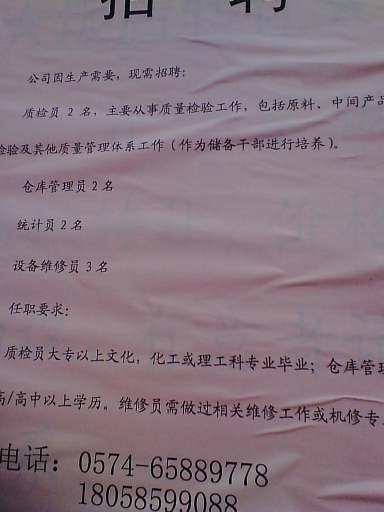 招聘
公司因生产需要，现需招聘：
质检员 2 名，主要从事质量检验工作，包括原料、中间产品
检验及其他质量管理体系工作（作为储备干部进行培养）。
仓库管理员 2 名
统计员 2 名
设备维修员 3 名
任职要求：
质检员大专以上文化，化工或理工科专业毕业；仓库管理
高/高中以上学历。维修员需做过相关维修工作或机修专
电话：0574-65889778
18058599088